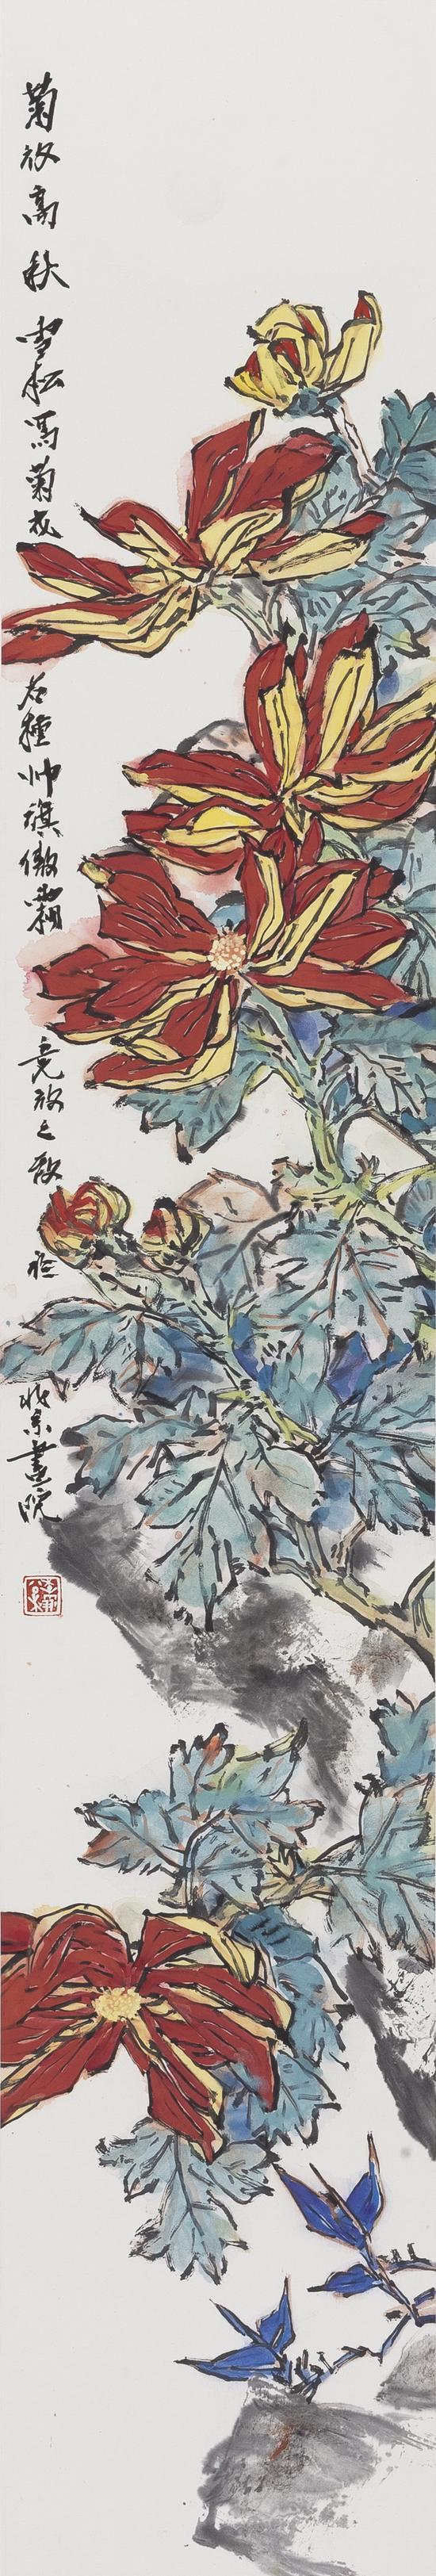 菊放高秋 雪松写菊 名种帅旗傲霜 竞放之 于 北京画院